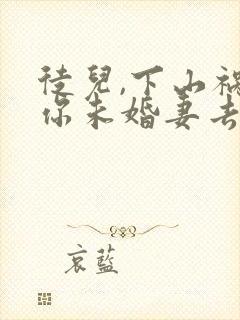 徒兒,下山祸
你未婚妻去
哀蓝